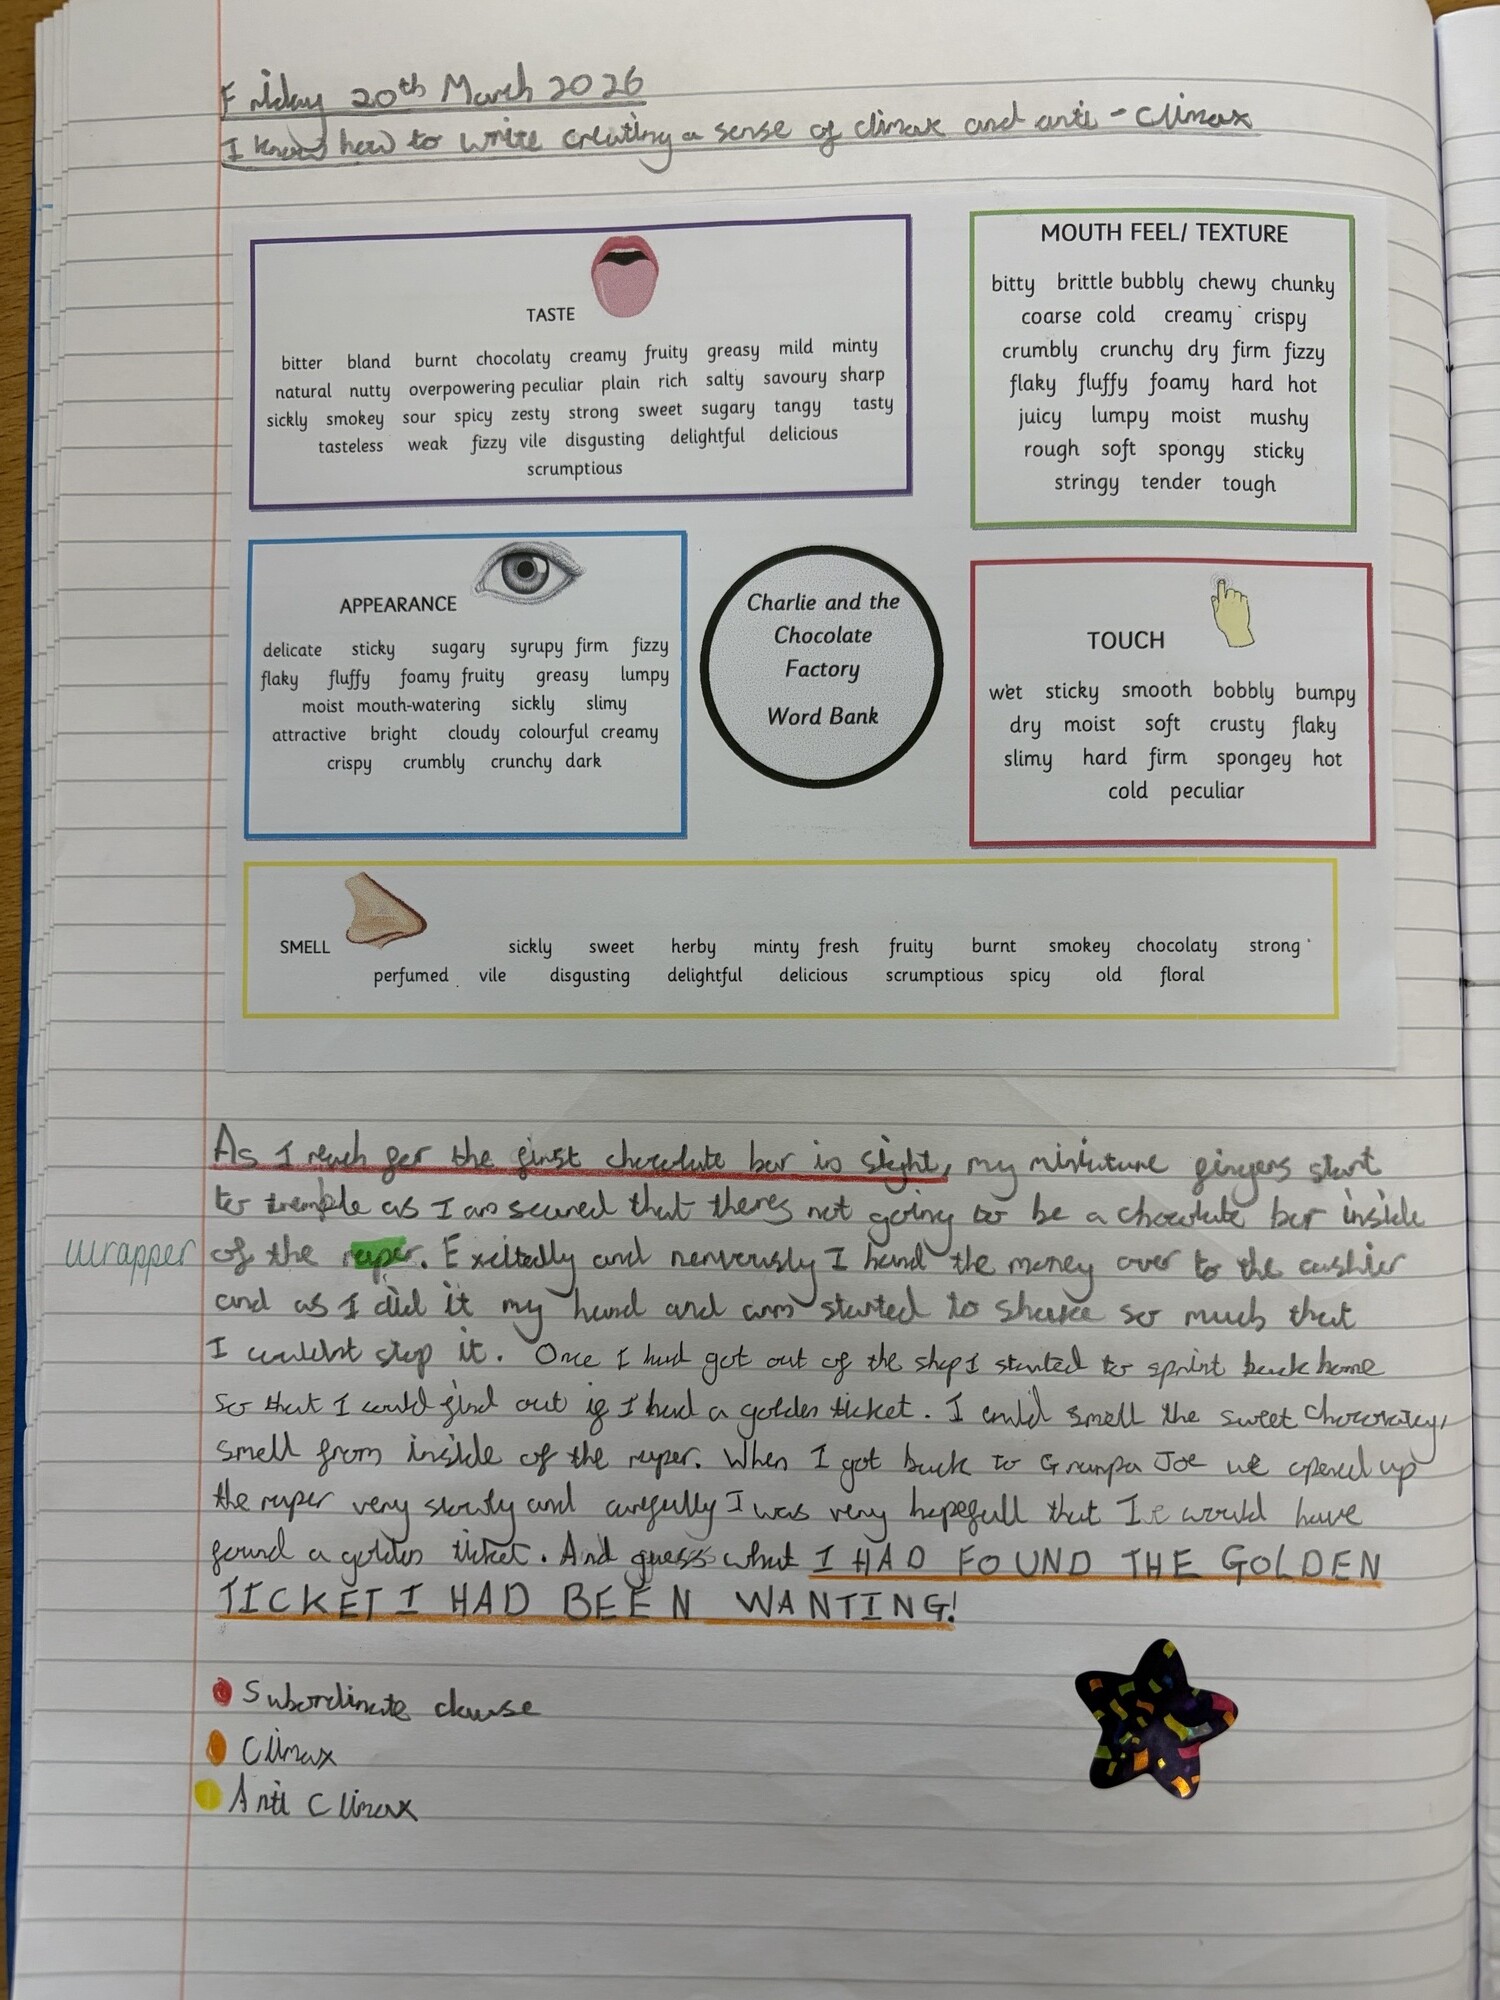 Friday 20th March 2026
I know how to write creating a sense of climax and anti-climax
TASTE
bitter bland burnt chocolaty creamy fruity greasy mild minty
natural nutty overpowering peculiar plain rich salty savoury sharp
sickly smokey sour spicy zesty strong sweet sugary tangy tasty
tasteless weak fizzy vile disgusting delightful delicious
scrumptious
MOUTH FEEL/ TEXTURE
bitty brittle bubbly chewy chunky
coarse cold creamy crispy
crumbly crunchy dry firm fizzy
flaky fluffy foamy hard hot
juicy lumpy moist mushy
rough soft spongy sticky
stringy tender tough
APPEARANCE
delicate sticky sugary syrupy firm fizzy
flaky fluffy foamy fruity greasy lumpy
moist mouth-watering sickly slimy
attractive bright cloudy colourful creamy
crispy crumbly crunchy dark
Charlie and the
Chocolate
Factory
Word Bank
TOUCH
wet sticky smooth bobbly bumpy
dry moist soft crusty flaky
slimy hard firm spongey hot
cold peculiar
SMELL
sickly sweet herby minty fresh fruity burnt smokey chocolaty strong
perfumed vile disgusting delightful delicious scrumptious spicy old floral
As I reach for the first chocolate bar in sight, my miniture fingers start
to tremble as I am scared that theres not going to be a chocolate bar inside
wrapper
of the raper. Excitedly and nervously I hand the money over to the cashier
and as I did it my hand and arm started to shake so much that
I couldnt stop it. Once I had got out of the shop I started to sprint back home
so that I could find out if I had a golden ticket. I could smell the sweet
smell from inside of the raper. When I got back to Granpa Joe we opened up
the raper very slowly and carefully I was very hopefull that I would have
found a golden ticket. And guess what I HAD FOUND THE GOLDEN
TICKET I HAD BEEN WANTING!
Subordinate clause
Climax
Anti Climax